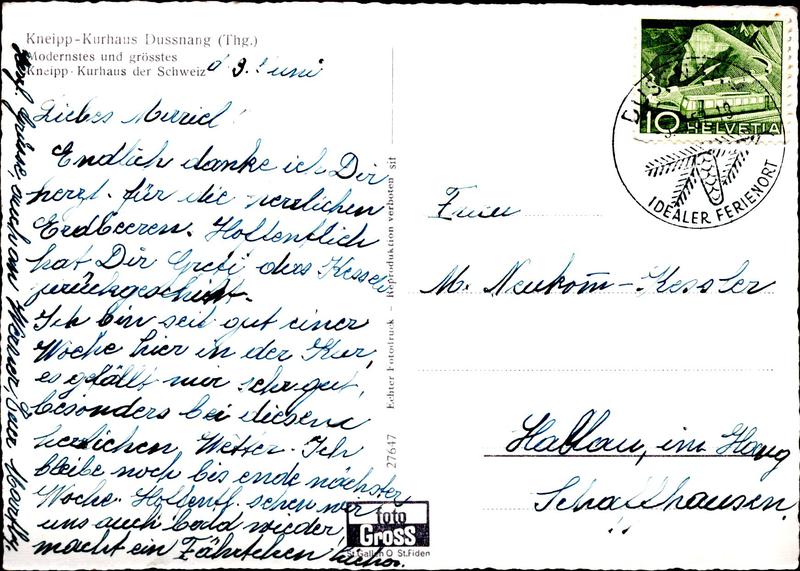 Kneipp-Kurhaus Dussnang (Thg.)
Modernstes und grösstes
Kneipp-Kurhaus der Schweiz
d 3. Juni
Liebes Meieli!
Endlich danke ich Dir
herzl. für die herrlichen
Erdbeeren. Hoffentlich
hat Dir Greti das Kesseli
zurückgeschickt.
Ich bin seit gut einer
Woche hier in der Kur,
es gefällt mir sehr gut,
besonders bei diesem
herrlichen Wetter. Ich
bleibe noch bis ende nächster
Woche. Hoffentl. sehen wir
uns auch bald wieder,
macht ein Fährtchen hieher.
Herzl. Grüsse, auch an Werner, Dein Marthy.
27647 Echter Fotodruck - Reproduktion verboten sit
foto
Gross
St. Gallen O St. Fiden
10 HELVETIA
IDEALER FERIENORT
Frau
M. Neukom̅-Kessler
Hallau, im Haag
Schaffhausen.